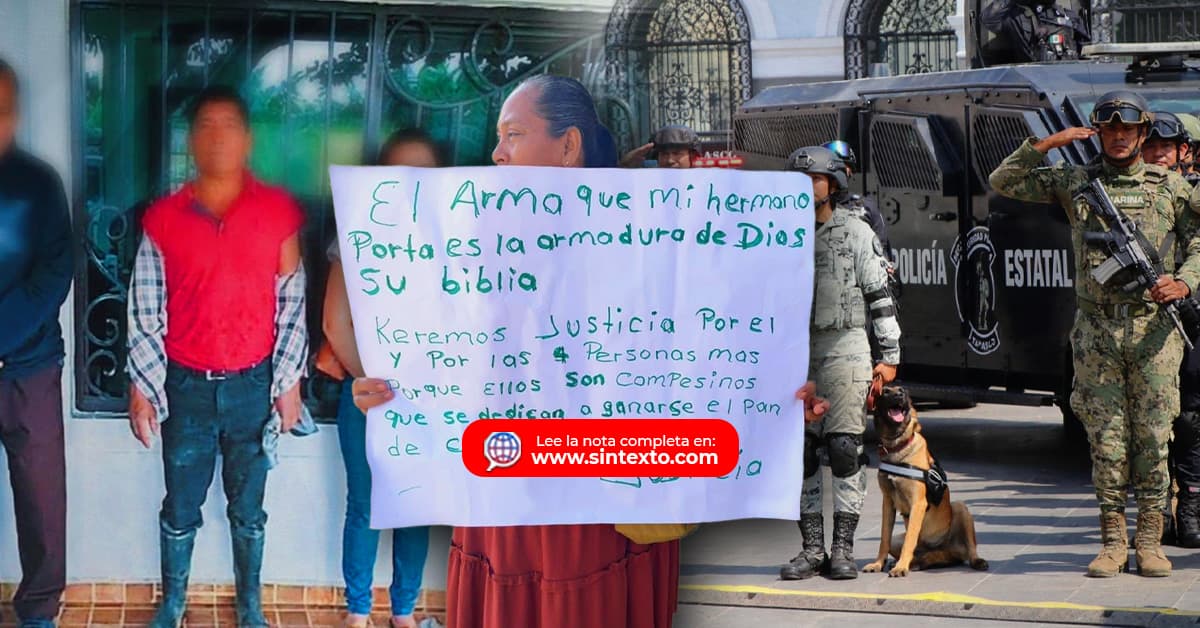 El Arma que mi hermano
Porta es la armadura de Dios
Su biblia
Keremos Justicia Por el
y Por las 4 Personas mas
Porque Ellos son Compesinos
que se dedican a ganarse el Pan
de
Lee la nota completa en:
www.sintexto.com
POLICÍA
ESTATAL
MARINA